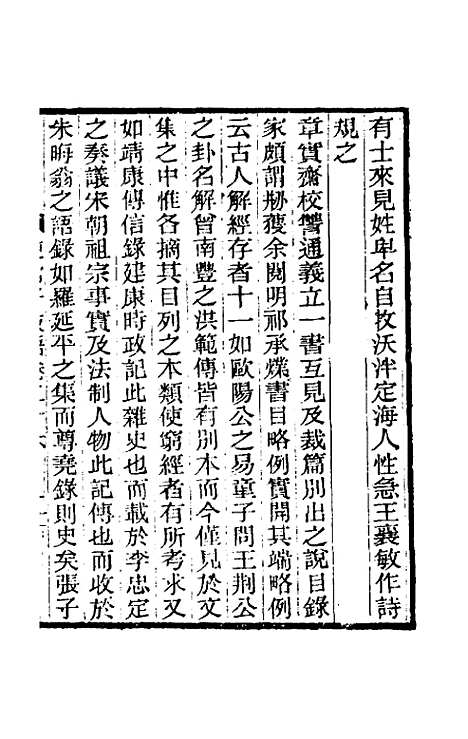 有士來見姓卑名自牧沃泮定海人性急王襄敏作詩
規之
章實齋校讐通義立一書互見及裁篇別出之說目錄
家頗謂剏獲余閱明祁承㸁書目略例實開其端略例
云古人解經存者十一如歐陽公之易童子問王荆公
之卦名解曾南豐之洪範傳皆有別本而今僅見於文
集之中惟各摘其目列之本類使窮經者有所考求又
如靖康傳信錄建康時政記此雜史也而載於李忠定
之奏議宋朝祖宗事實及法制人物此記傳也而收於
朱晦翁之語錄如羅延平之集而尊堯錄則史矣張子